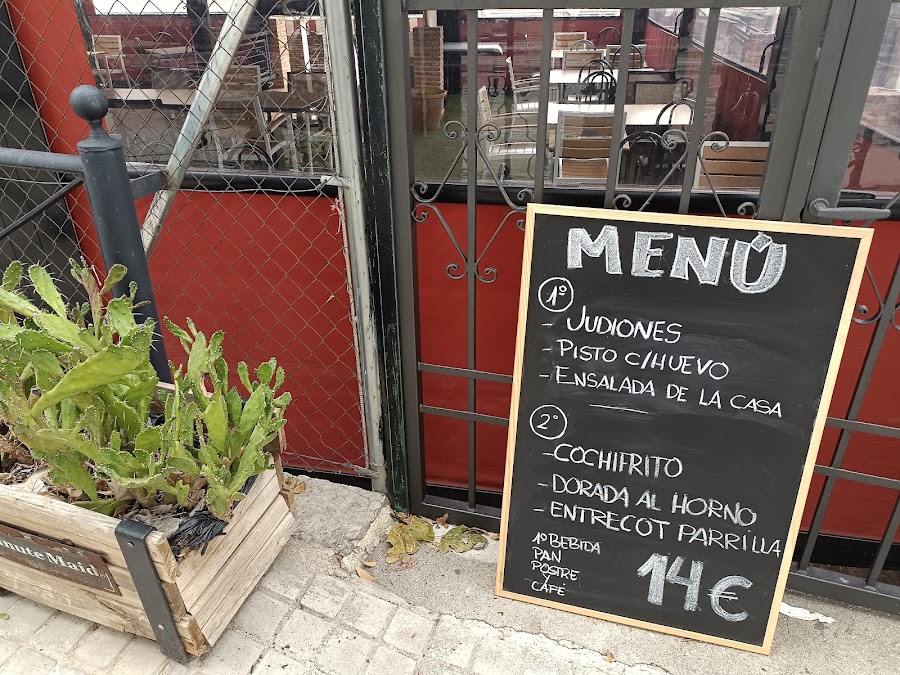 MENÚ
1º
- JUDIONES
- PISTO C/HUEVO
- ENSALADA DE LA CASA
2º
- COCHIFRITO
- DORADA AL HORNO
- ENTRECOT PARRILLA
1º BEBIDA
PAN
POSTRE
Y
CAFÉ
14€
inuteMaid